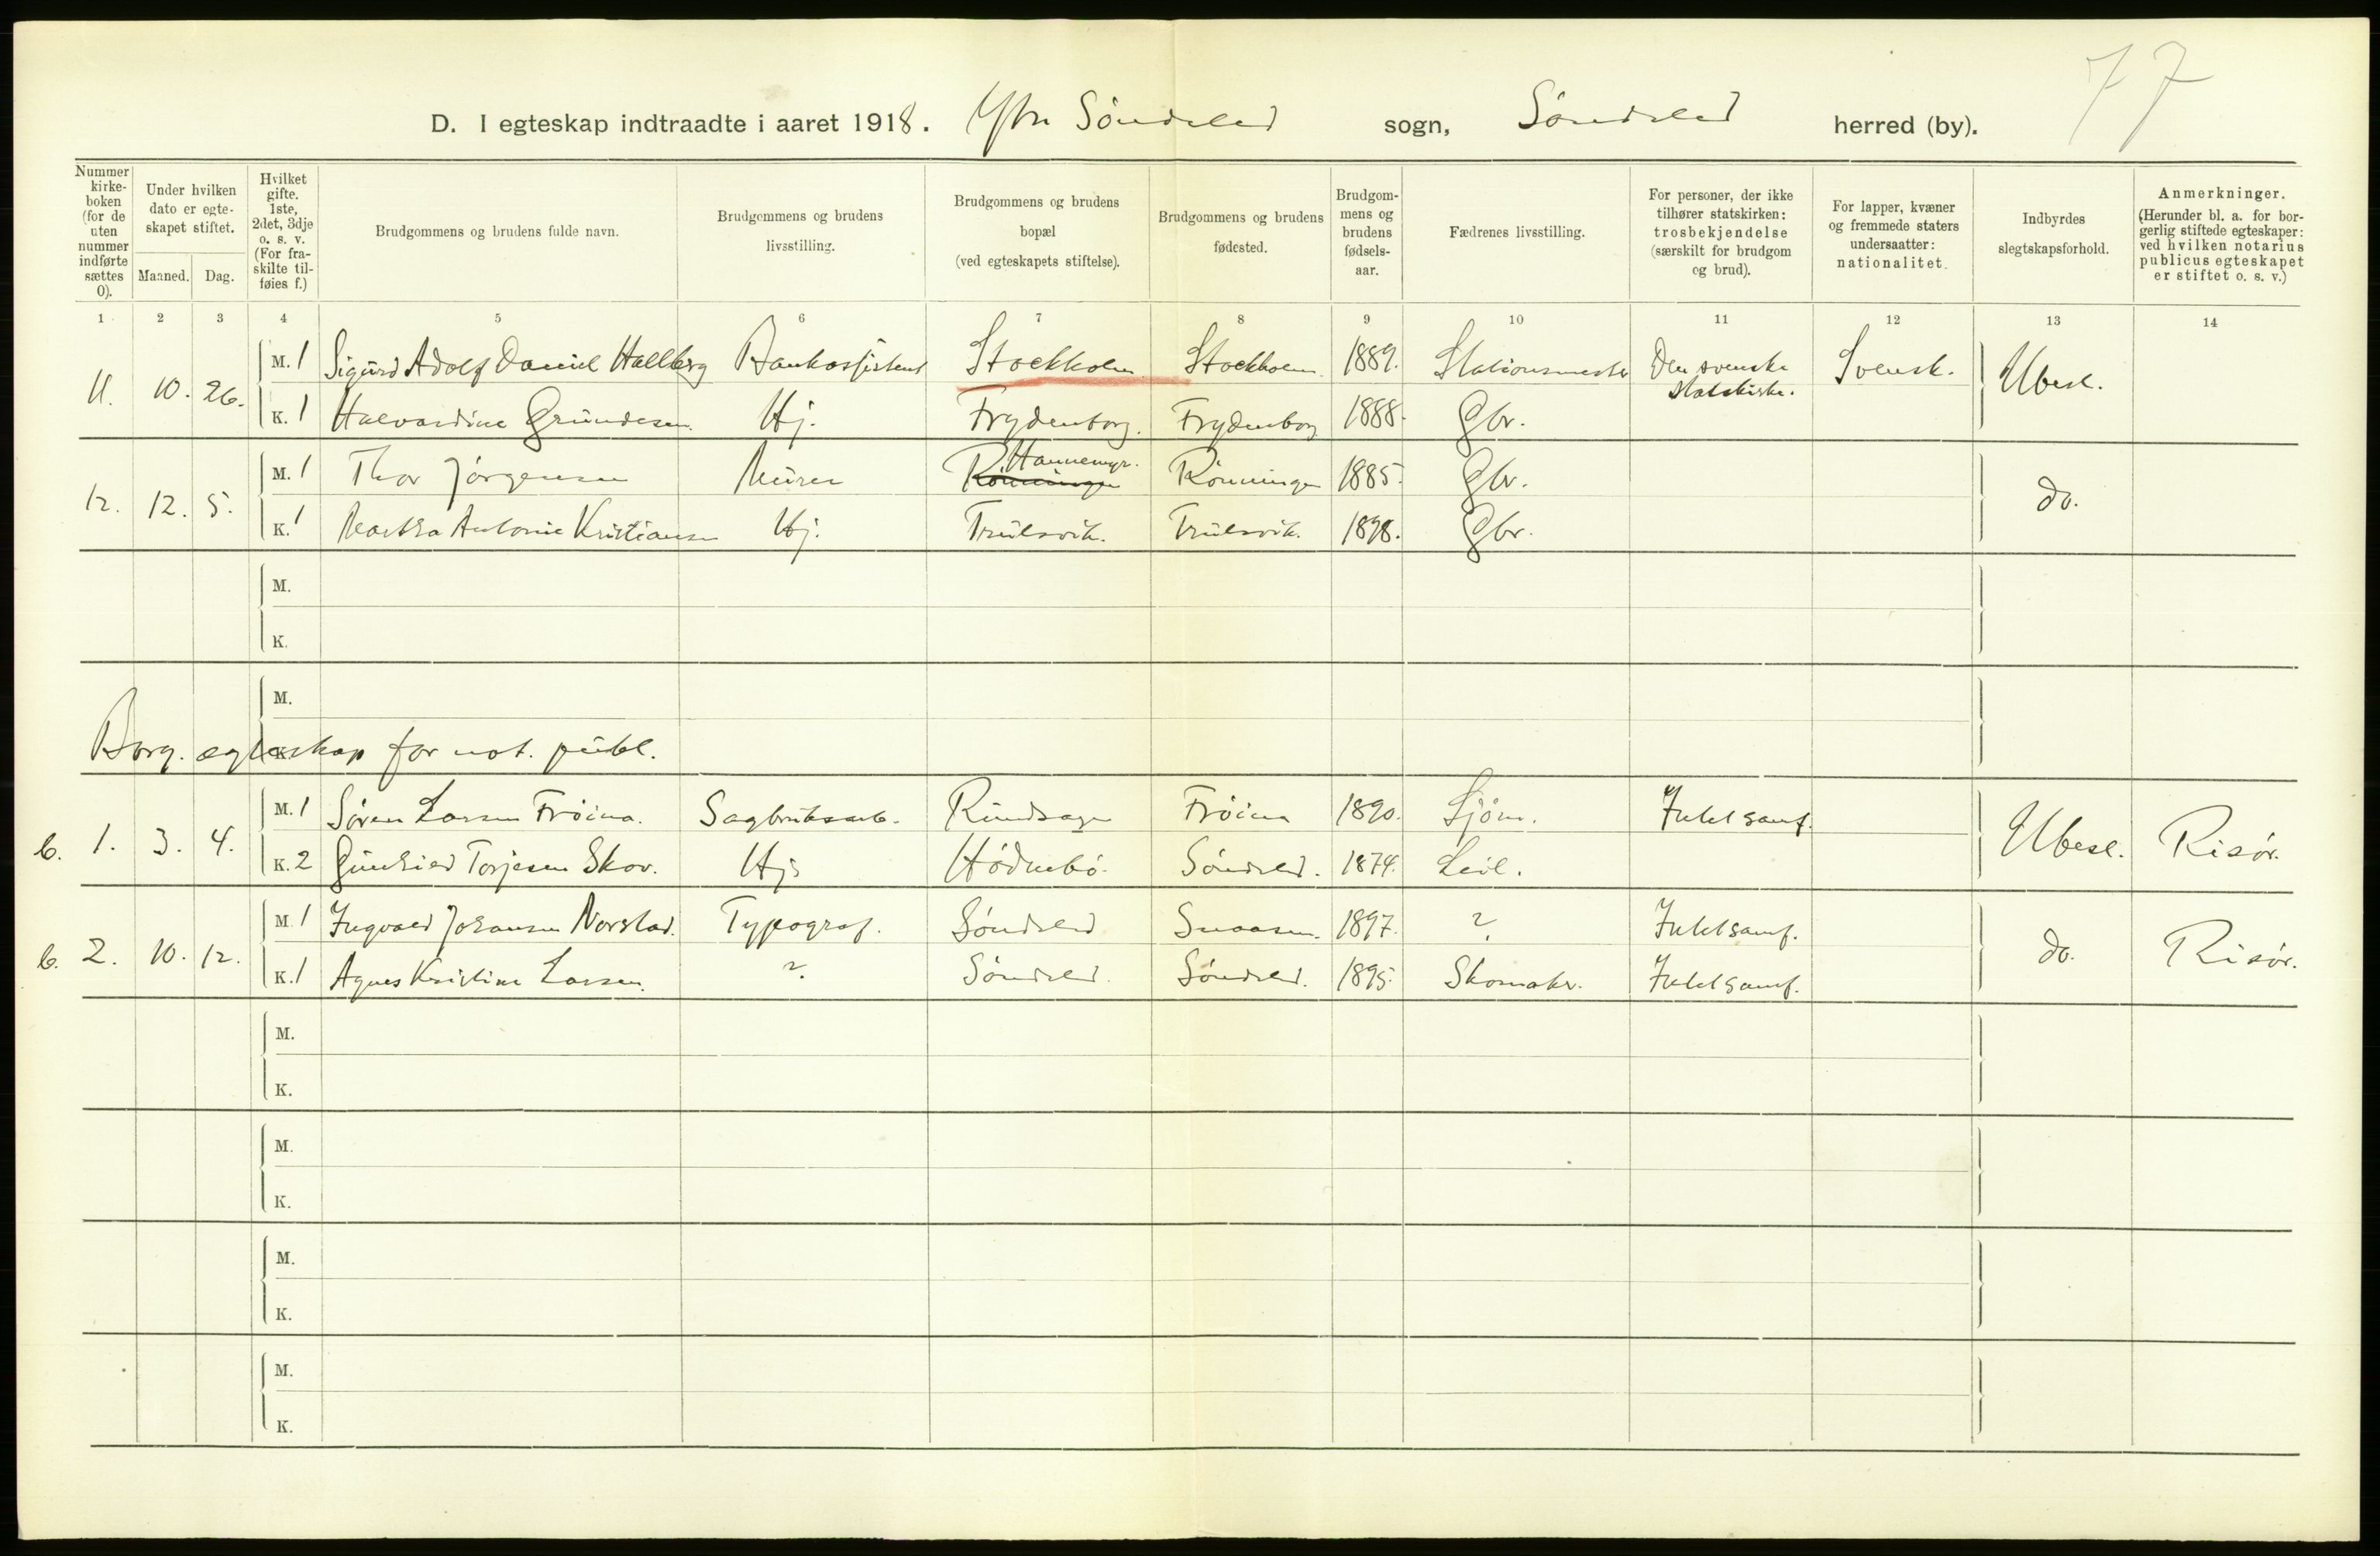 77
D. I egteskap indtraadte i aaret 1918. Ytre Söndeled sogn, Söndeled herred (by).
Nummer kirke-boken (for de uten nummer indførte sættes 0). Under hvilken dato er egte-skapet stiftet. Maaned. Dag. Hvilket gifte. 1ste, 2det, 3dje o. s. v. (For fra-skilte til-føies f.) Brudgommens og brudens fulde navn. Brudgommens og brudens livsstilling. Brudgommens og brudens bopæl (ved egteskapets stiftelse). Brudgommens og brudens fødested. Brudgom-mens og brudens fødsels-aar. Fædrenes livsstilling. For personer, der ikke tilhører statskirken: trosbekjendelse (særskilt for brudgom og brud). For lapper, kvæner og fremmede staters undersaatter: nationalitet. Indbyrdes slegtskapsforhold. Anmerkninger. (Herunder bl. a. for bor-gerlig stiftede egteskaper: ved hvilken notarius publicus egteskapet er stiftet o. s. v.)
1 2 3 4 5 6 7 8 9 10 11 12 13 14
11. 10. 26. M. 1 Sigurd Adolf Daniel Hallberg Bankassistent Stockholm Stockholm. 1889. Stationsmester Den svenske statskirke. Svensk. Ubesl.
K. 1 Halvardine Grundesen. Hj. Frydenborg. Frydenborg 1888. Gbr.
12. 12. 5. M. 1 Thor Jörgensen Murer Rönningen Hannemyr. Rönningen 1885. Gbr. do.
K. 1 Martha Antonie Kristiansen Hj. Trulsvik. Trulsvik. 1898. Gbr.
M.
K.
M.
K.
Borg. egteskap for not. publ.
b. 1. 3. 4. M. 1 Sören Larsen Fröina. Sagbruksarb. Rundsage Fröina 1890. Sjöm. Intet samf. Ubesl. Risör.
K. 2 Gunhild Torjesen Skov. Hj. Hödnebö. Söndeled. 1874. Leil.
b. 2. 10. 12. M. 1 Ingvald Johansen Norstad. Typograf. Söndeled Snaasen. 1897. ? Intet samf. do. Risör.
K. 1 Agnes Kristine Larsen. ? Söndeled. Söndeled. 1895. Skomaker. Intet samf.
M.
K.
M.
K.
M.
K.
M.
K.